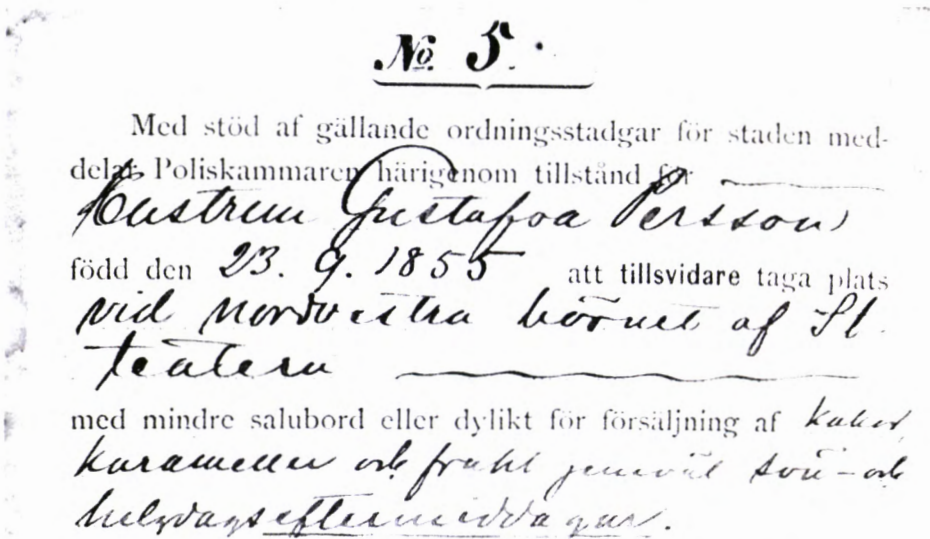 No. 5.
Med stöd af gällande ordningsstadgar för staden med-
delar Poliskammaren härigenom tillstånd för
Hustrun Gustafva Persson
född den 23. 9. 1855 att tillsvidare taga plats
vid nordvestra hörnet af St.
teatern
med mindre salubord eller dylikt för försäljning af kakor,
karameller och frukt sön- och
helgdagseftermiddagar.